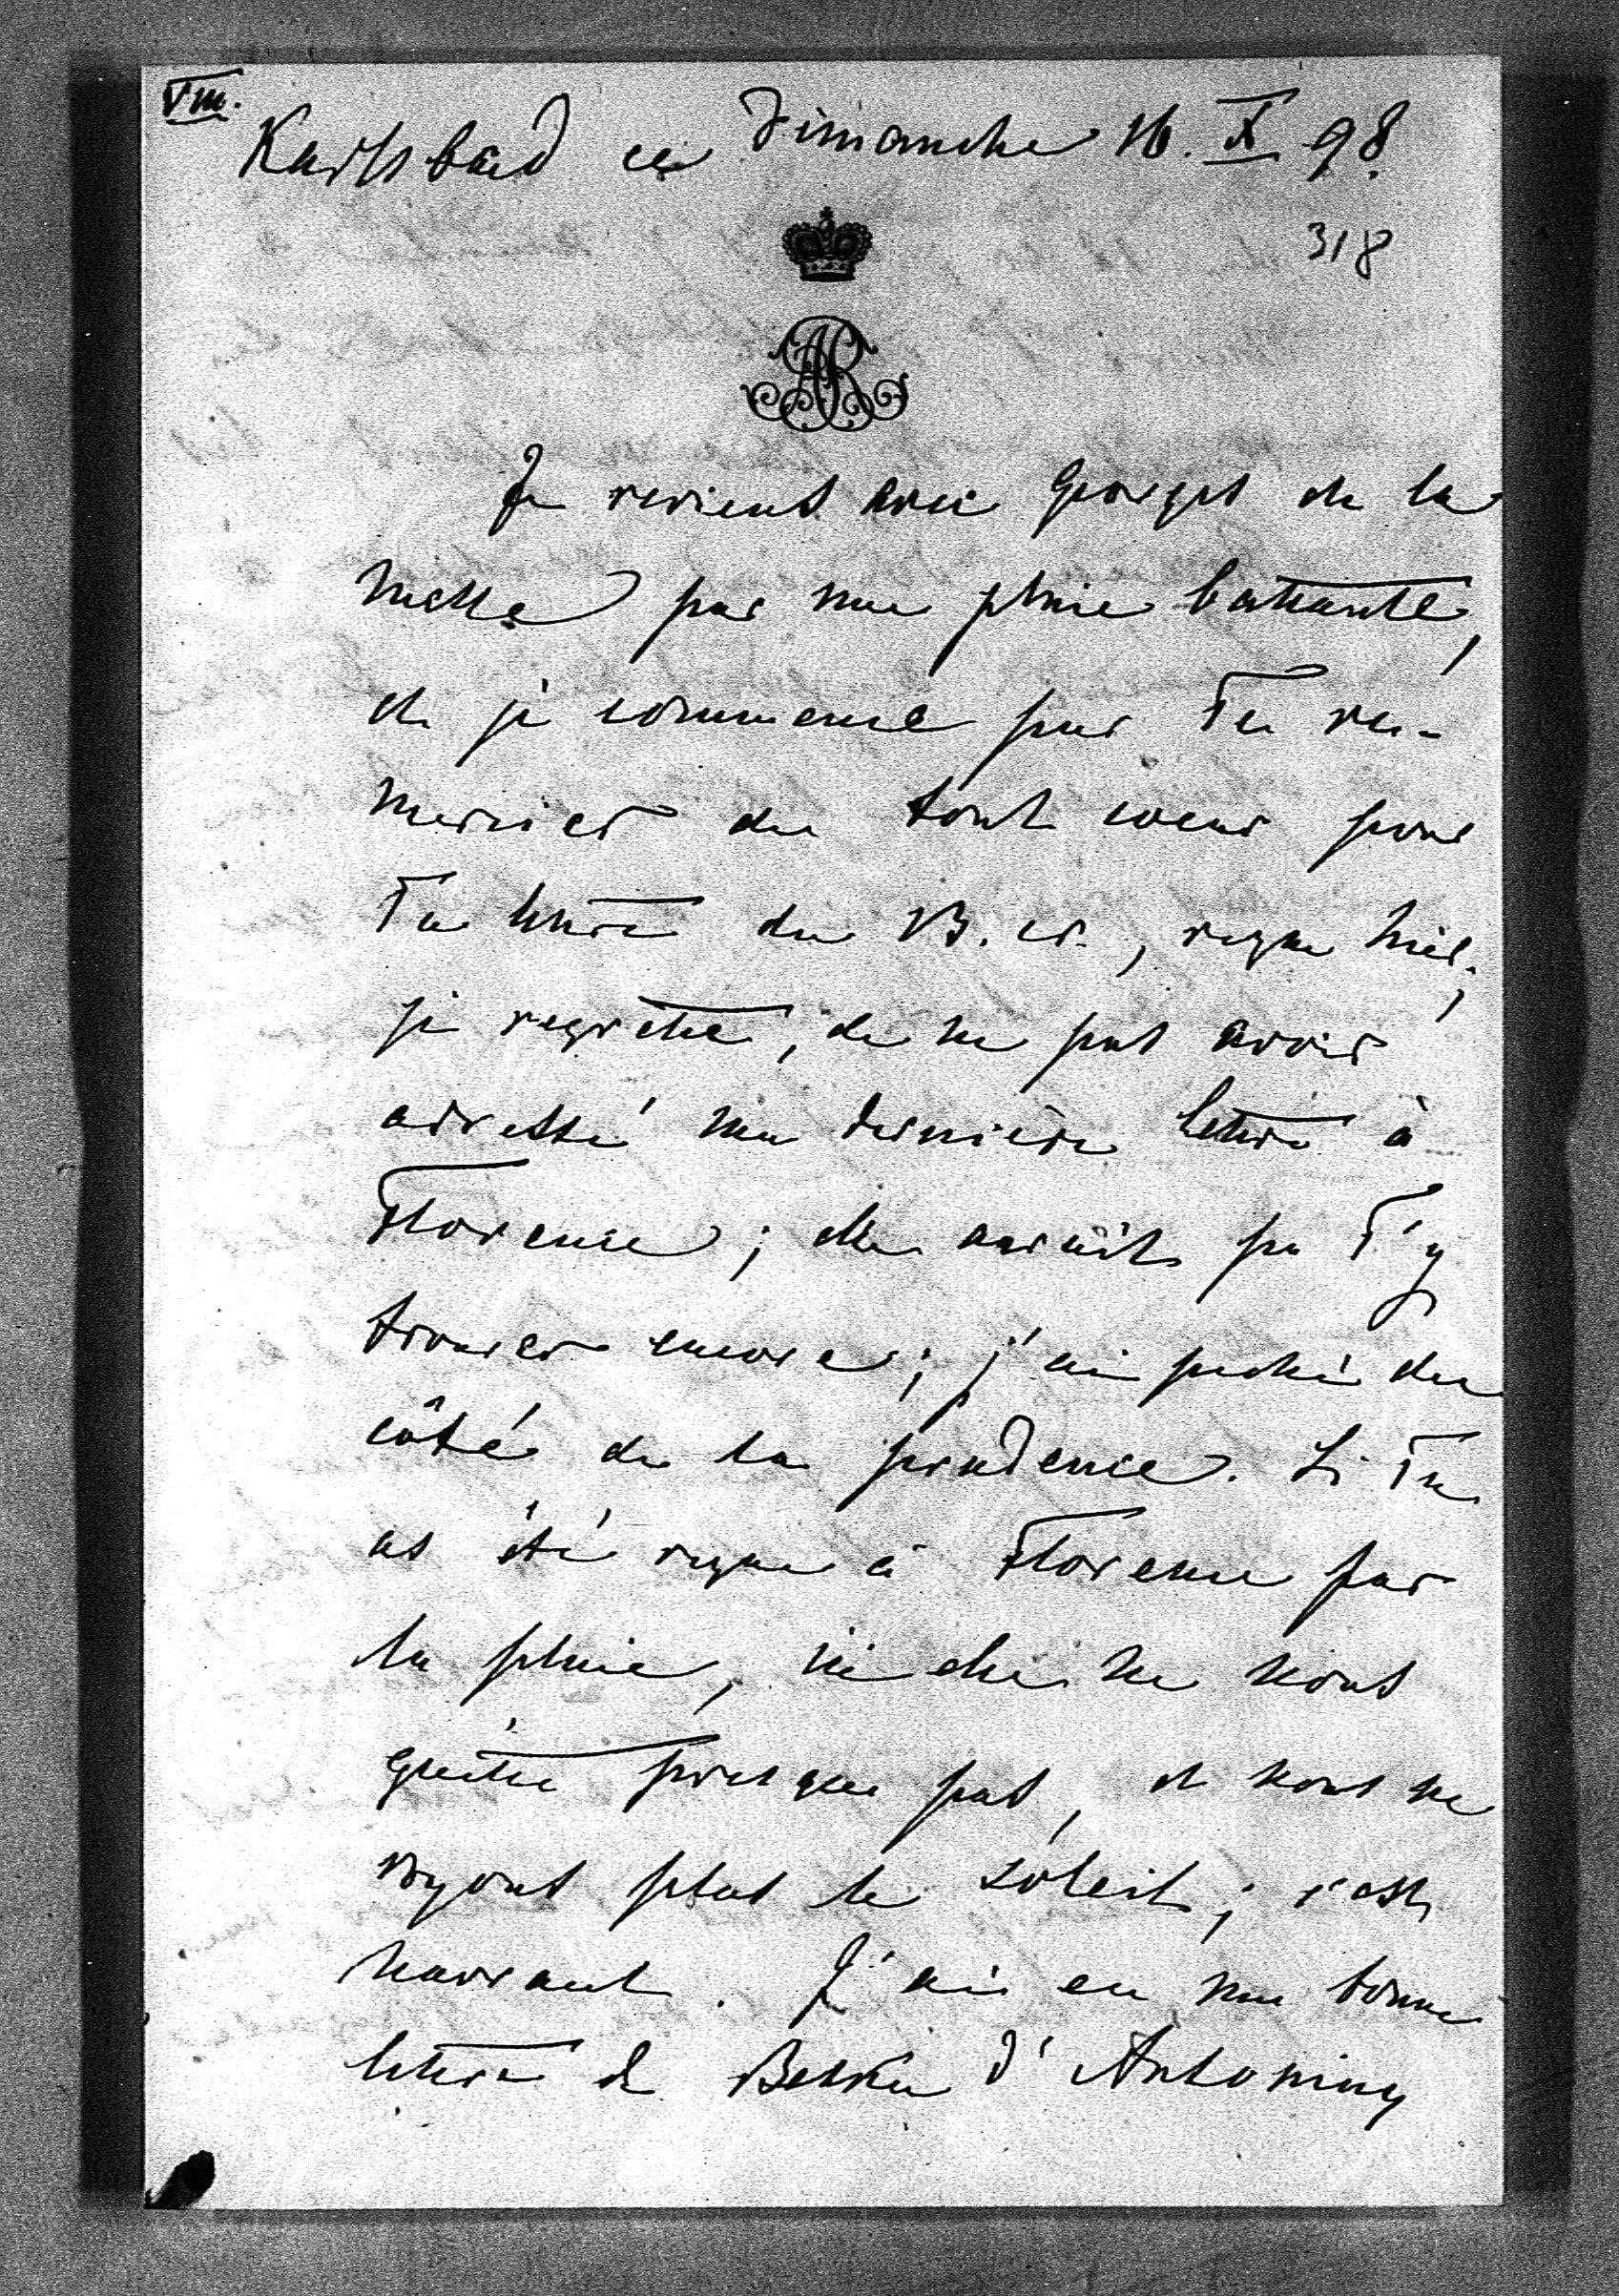 VIII.
Karlsbad ce Dimanche 16. X 98.
318
AR
Je reviens avec Georges de la
messe par une pluie battante,
et je commence par Te re-
mercier de tout coeur pour
Ta lettre du 13. cr., reçue hier;
je regrette, de ne pas avoir
adressé ma dernière lettre à
Florence; elle aurait pu T'y
trouver encore; j'ai péché du
côté de la prudence. Si Tu
as été reçue à Florence par
la pluie, ici elle ne nous
quitte presque pas, et nous ne
voyons plus le soleil; c'est
navrant. J'ai eu une bonne
lettre de Betka d'Antoniny